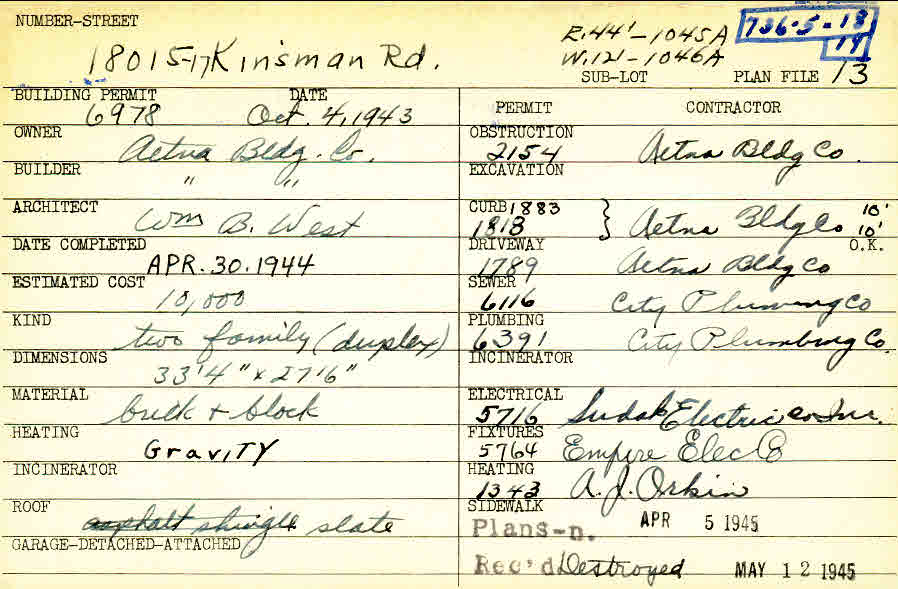 NUMBER-STREET
18015-17 Kinsman Rd.
E.44'-1045A
W.121-1046A
736-5-18
19
SUB-LOT PLAN FILE 13
BUILDING PERMIT DATE
6978 Oct. 4, 1943
OWNER
Aetna Bldg. Co.
BUILDER
" "
ARCHITECT
Wm B. West
DATE COMPLETED
APR. 30. 1944
ESTIMATED COST
10,000
KIND
two family (duplex)
DIMENSIONS
33'4" x 27'6"
MATERIAL
brick + block
HEATING
GraviTY
INCINERATOR
ROOF
asphalt shingle slate
GARAGE-DETACHED-ATTACHED
PERMIT CONTRACTOR
OBSTRUCTION
2154 Aetna Bldg Co.
EXCAVATION
CURB 1883 10'
1818 } Aetna Bldg Co 10'
DRIVEWAY O.K.
1789 Aetna Bldg Co
SEWER
6116 City Plumbing Co
PLUMBING
6391 City Plumbing Co.
INCINERATOR
ELECTRICAL
5716 Sudak Electric Co Inc.
FIXTURES
5764 Empire Elec Co
HEATING
1343 A. J. Orkin
SIDEWALK
Plans-n. APR 5 1945
Rec'd Destroyed MAY 12 1945